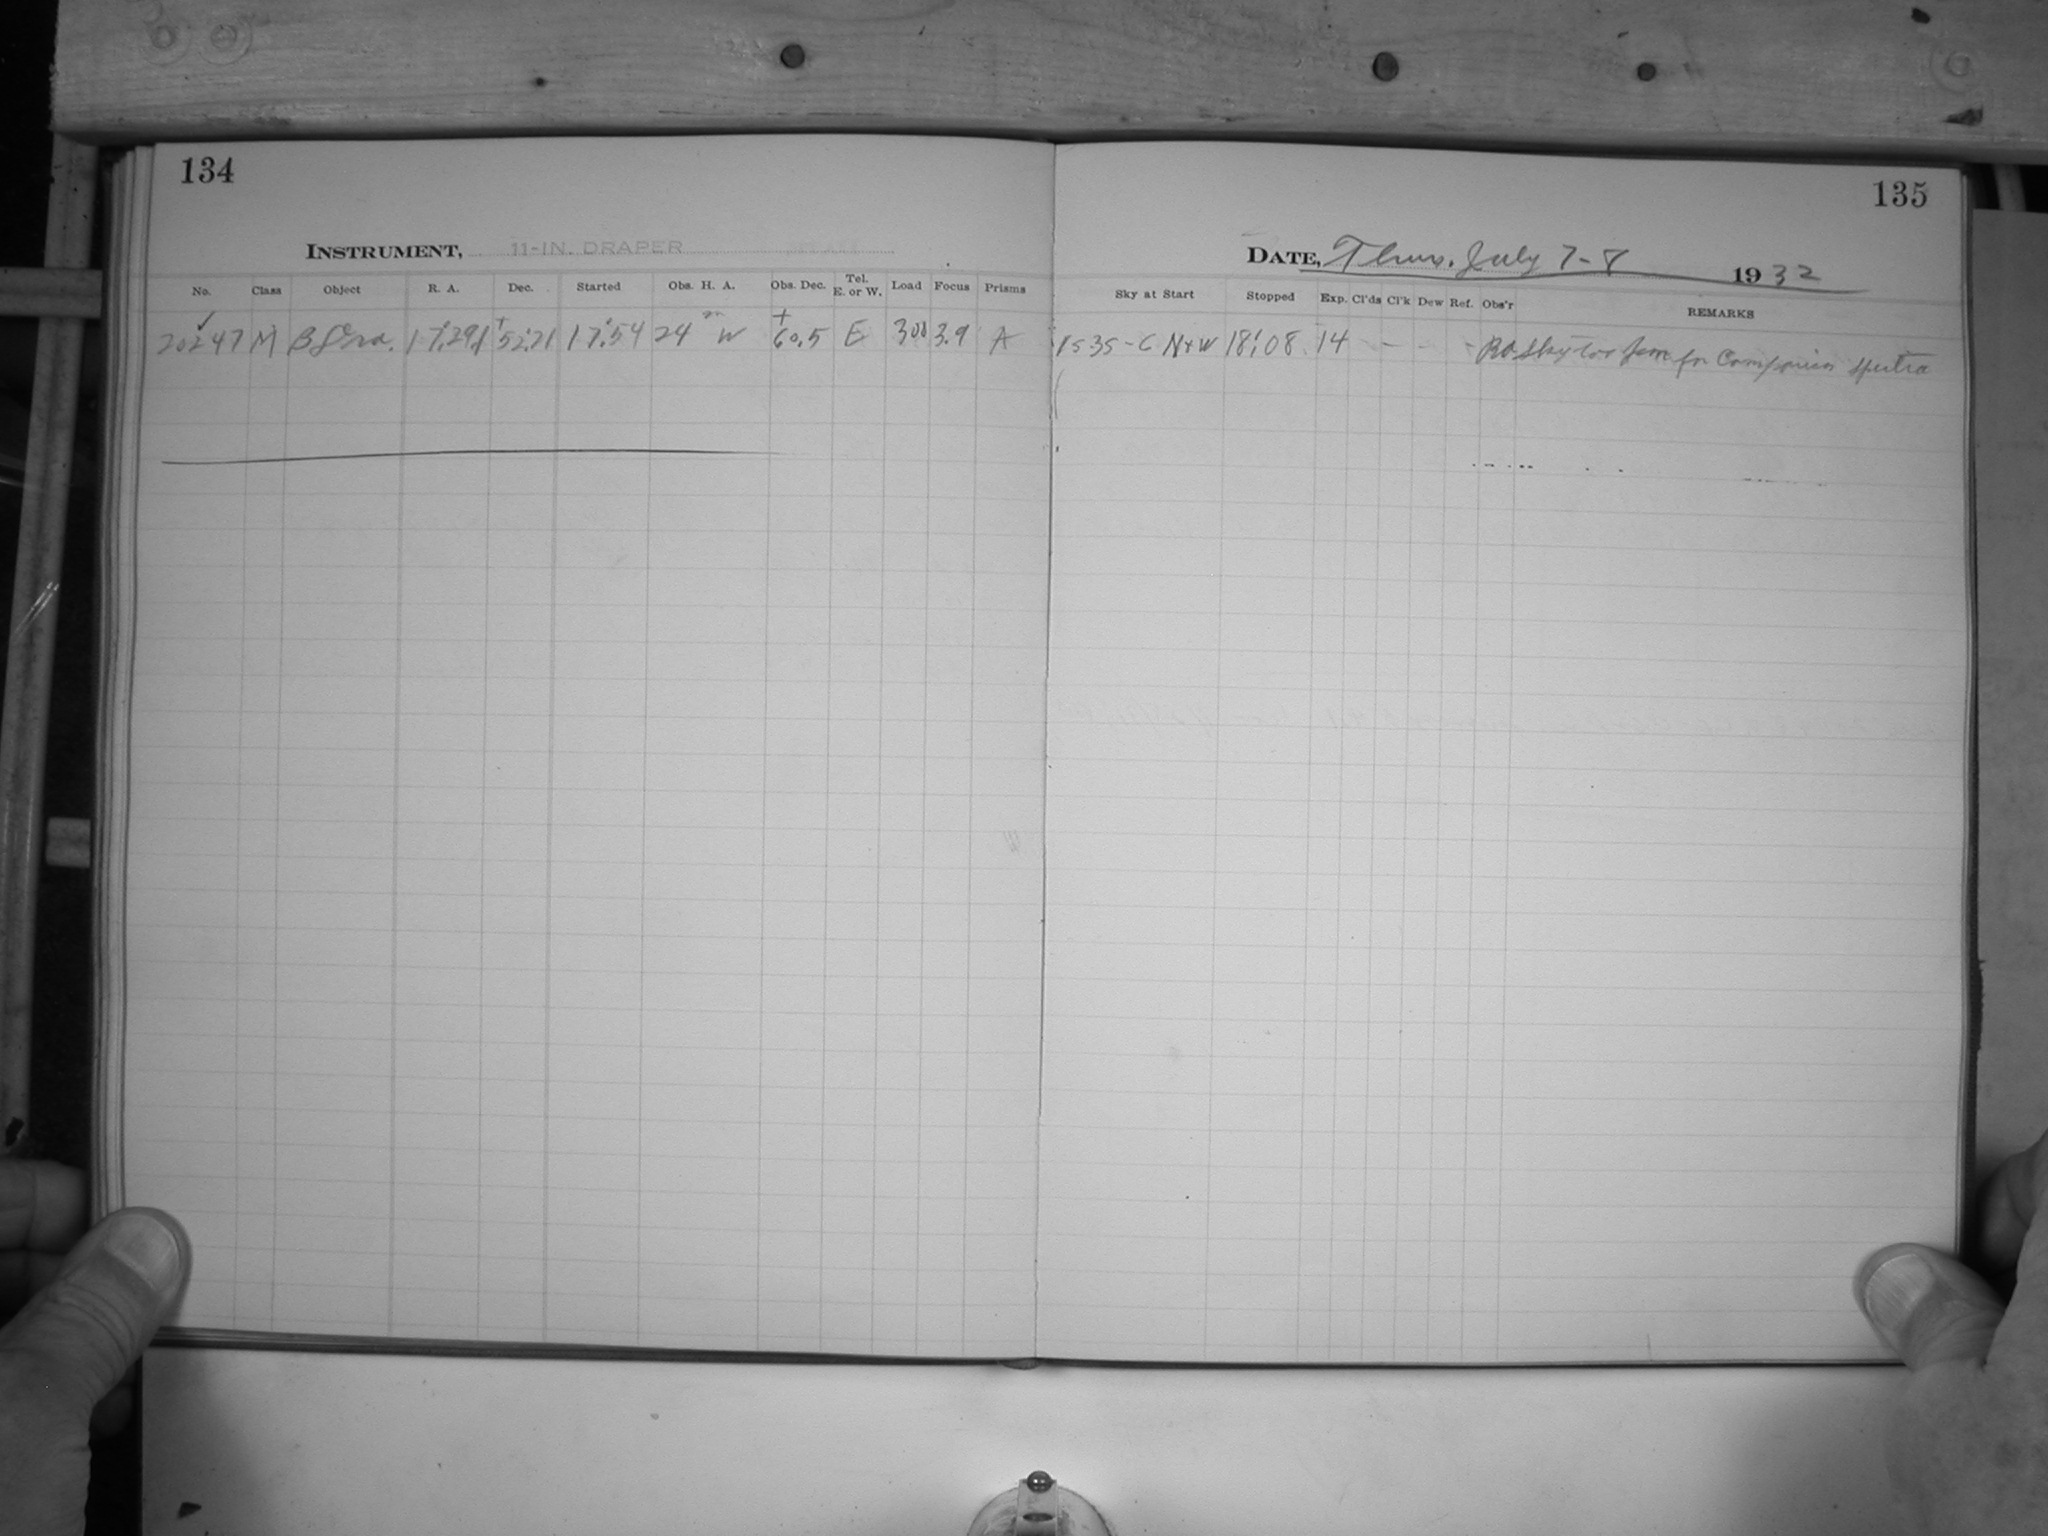 134
135
INSTRUMENT, 11-IN. DRAPER
DATE, Thurs. July 7-8 1932
No. Class Object R. A. Dec. Started Obs. H. A. Obs. Dec. Tel. E. or W. Load Focus Prisms Sky at Start Stopped Exp. Cl'ds Cl'k Dew Ref. Obs'r REMARKS
20247 M β Dra. 17:29.1 +52:21 17:54 24 m W +60.5 E 300 3.9 A N+W 18:08 14 - - - - Sky too for Comparison Spectra